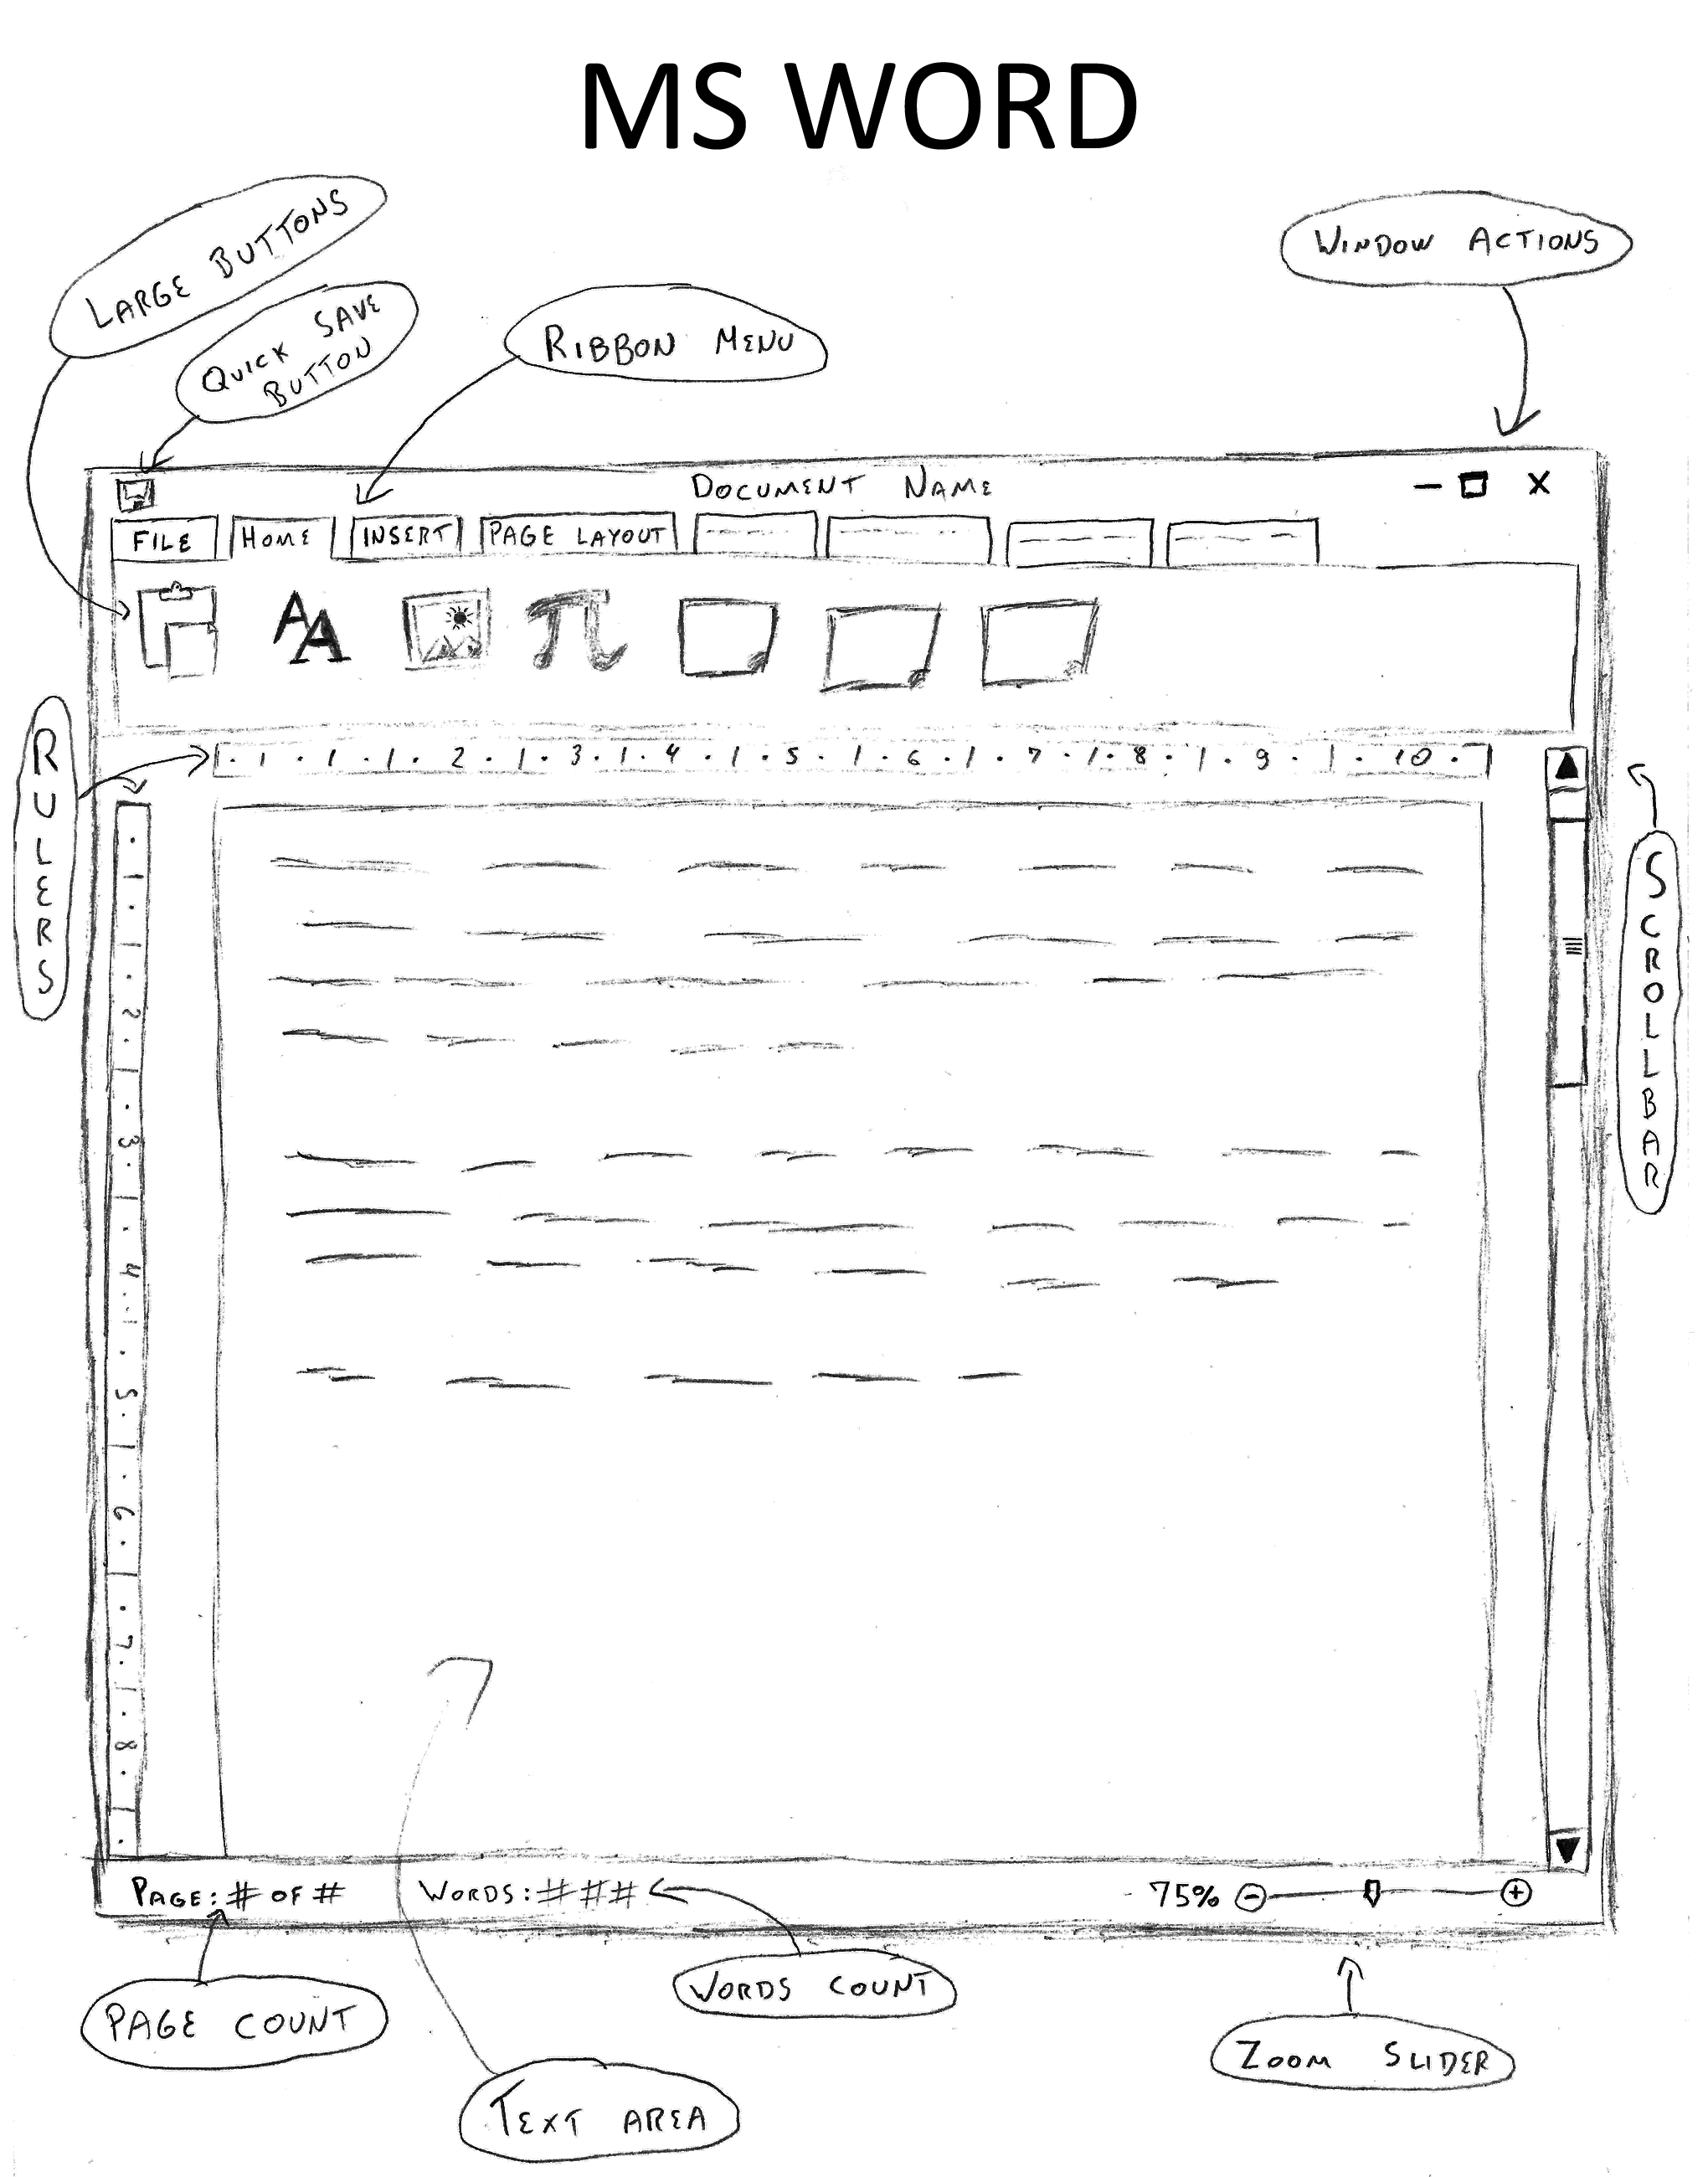 MS WORD
LARGE BUTTONS
WINDOW ACTIONS
QUICK SAVE
BUTTON
RIBBON MENU
DOCUMENT NAME
FILE HOME INSERT PAGE LAYOUT
RULERS
1 · 1 · 1 · 1 · 2 · 1 · 3 · 1 · 4 · 1 · 5 · 1 · 6 · 1 · 7 · 1 · 8 · 1 · 9 · 1 · 10 ·
· 1 · 1 · 2 · 1 · 3 · 1 · 4 · 1 · 5 · 1 · 6 · 1 · 7 · 1 · 8 · 1 ·
SCROLLBAR
PAGE: # OF # WORDS: ### 75%
PAGE COUNT
WORDS COUNT
TEXT AREA
ZOOM SLIDER